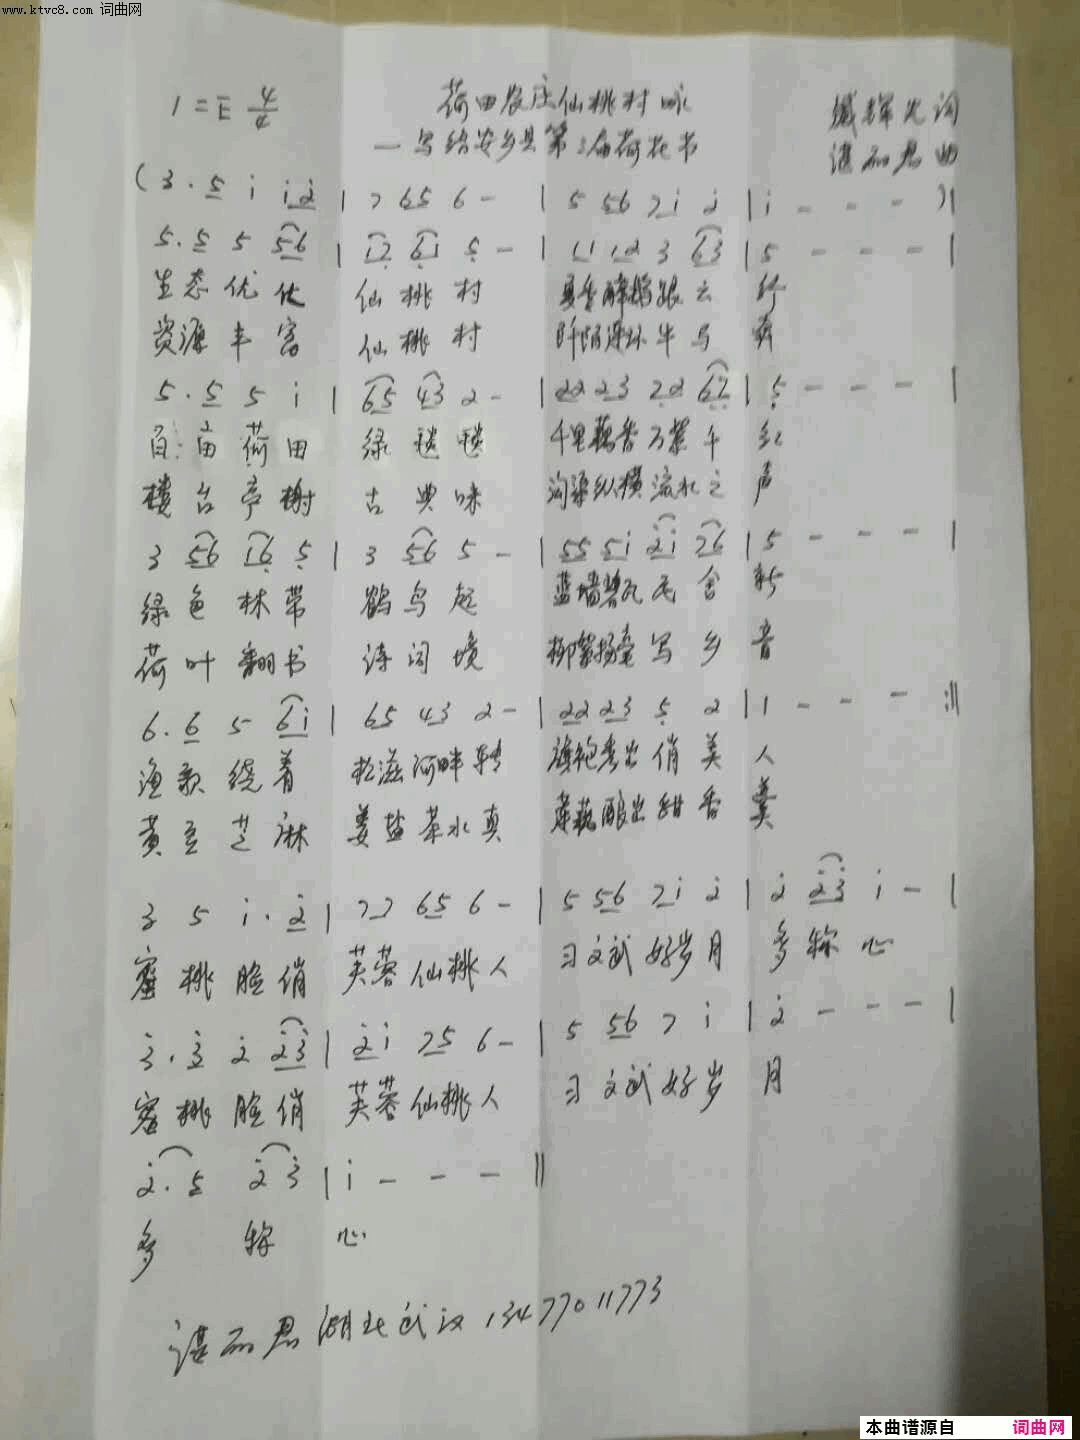 www.ktvc8.com 词曲网
1=E 4/4 荷田农庄仙桃村咏 辉光词
—写给安乡县第三届荷花节 谌丽君曲
(3·5 i i2 | 7 65 6 - | 5 56 7i 2 | i - - - )|
5·5 5 56 | 12 61 5 - | 11 12 3 63 | 5 - - - |
生态优化 仙桃村 云
资源丰富 仙桃村 阡陌 牛马
5·5 5 i | 65 43 2 - | 22 23 22 62 | 5 - - - |
百亩荷田 绿毯毯 千里藕香万 千红
楼台亭榭 古典味 沟渠纵横流水之声
3 56 16 5 | 3 56 5 - | 55 5i 2i 76 | 5 - - - |
绿色林带 鹤鸟起 蓝墙碧瓦民舍新
荷叶翻书 诗词境 柳絮扬 写乡音
6·6 5 6i | 65 43 2 - | 22 23 5 2 | 1 - - - :||
渔歌绕着 松滋河畔转 旗袍秀出俏美人
黄豆芝麻 姜盐茶水真 莲藕酿出甜香羹
3 5 i·2 | 77 65 6 - | 5 56 7i 2 | 2 23 i - |
蜜桃脸俏 芙蓉仙桃人 习文武好岁月 多称心
3·3 2 23 | 2i 75 6 - | 5 56 7 i | 2 - - - |
蜜桃脸俏 芙蓉仙桃人 习文武好岁 月
2·5 23 | i - - - ||
多 称 心
谌丽君湖北武汉13477011773
本曲谱源自 词曲网